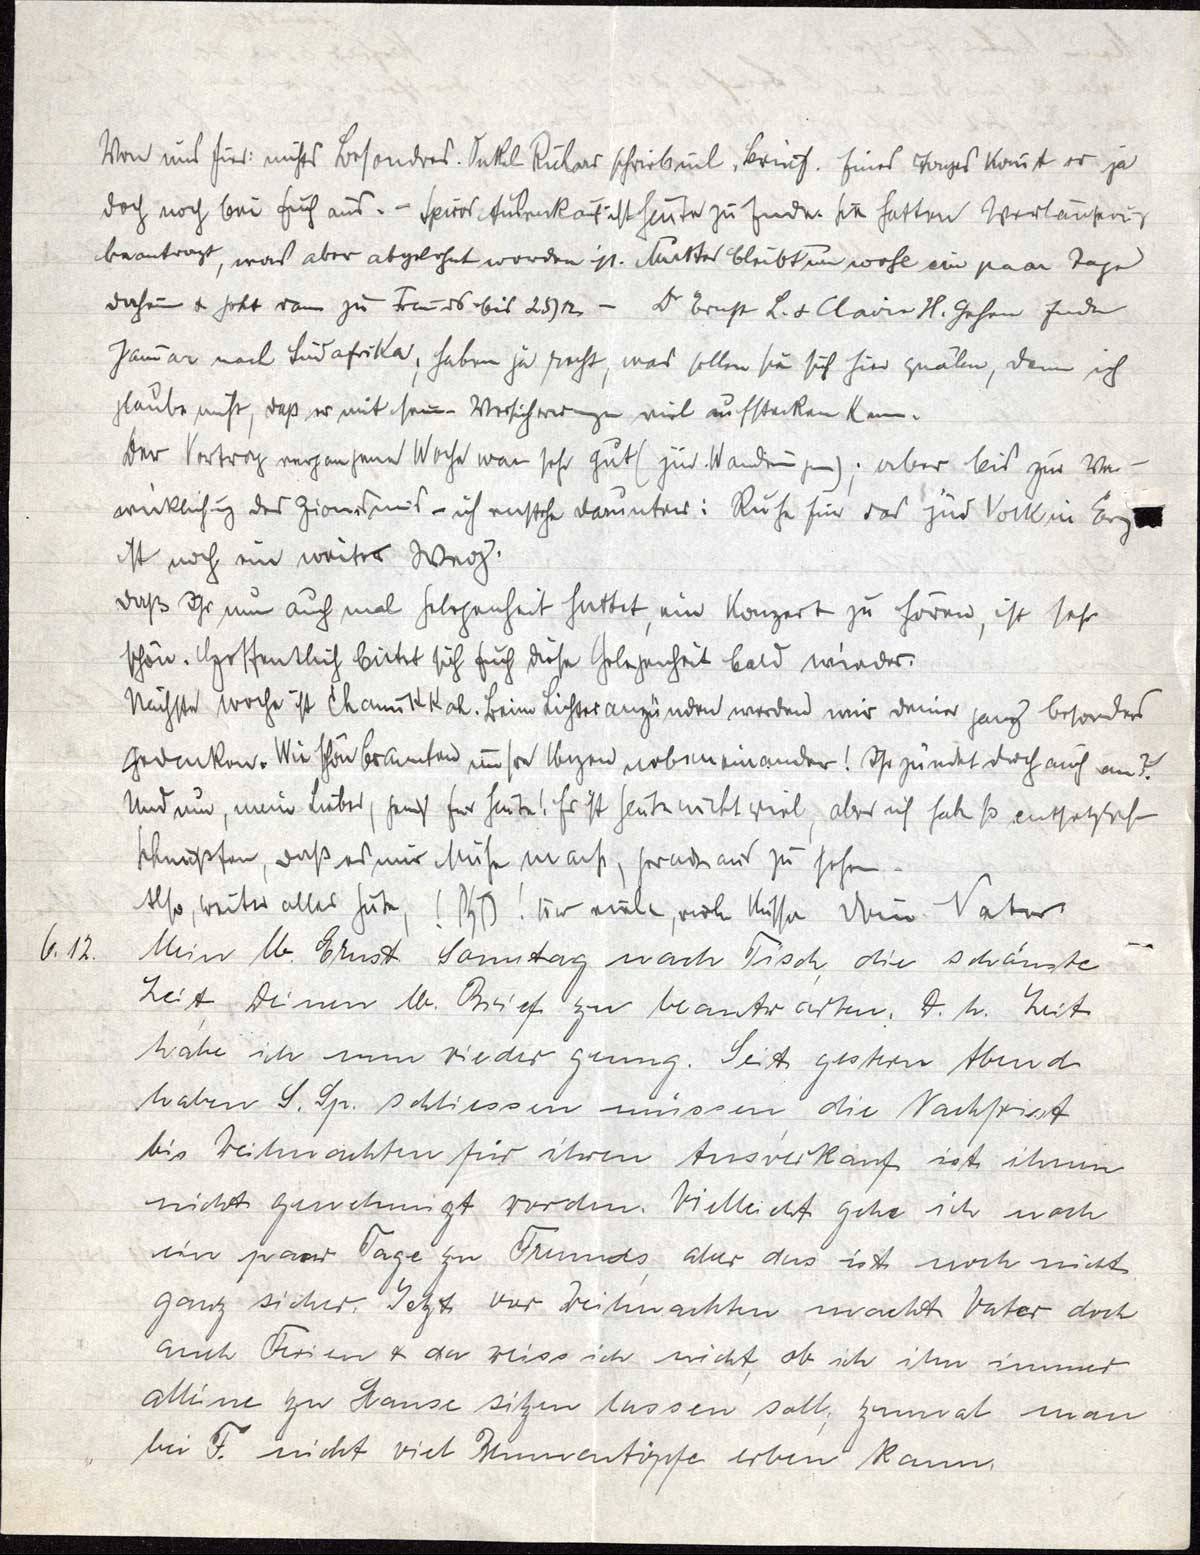 Von uns hier: nichts Besondres. Onkel Richard schrieb mal, . Eines Tages kommt er ja
doch noch bei Euch aus. – Spiros Ausverkauf ist heute zu Ende. Sie hatten Verlängerung
beantragt, was aber abgelehnt worden ist. Mutter bleibt nun wohl ein paar Tage
daheim & geht dann zu Freunds bis 25/12. – Dr Ernst L. & Claire H. gehen Ende
Januar nach Südafrika, haben ja recht, was sollen sie sich hier quälen, denn ich
glaube nicht, daß er mit seinen Versicherungen viel aufstecken kann.
Der Vortrag vergangene Woche war sehr gut (jüd. Wanderungen); aber bis zur Ver-
wirklichung des Zionismus – ich verstehe darunter: Ruhe für das jüd Volk in Erez
ist noch ein weiter Weg.
Daß Ihr nun auch mal Gelegenheit hattet, ein Konzert zu hören, ist sehr
schön. Hoffentlich bietet sich Euch diese Gelegenheit bald wieder.
Nächste Woche ist Chanukkah. Beim Lichteranzünden werden wir Deiner ganz besonders
gedenken. Wie schön brannten unsre Kerzen nebeneinander! Ihr zündet doch auch an?
Und nun, mein Lieber, genug für heute! Es ist heute nicht viel, aber ich habe so entsetzlich
Schnupfen, daß es mir Mühe macht, geradeaus zu sehen.
Also, weiter alles Gute, ! ! Und viele, viele Küsse Dein Vater
6.12. Mein lb. Ernst Sonntag nach Tisch, die schönste
Zeit Deinen lb. Brief zu beantworten. D. h. Zeit
habe ich nun wieder genug. Seit gestern Abend
haben S. Sp. schliessen müssen, die Nachfrist
bis Weihnachten für ihren Ausverkauf ist ihnen
nicht genehmigt worden. Vielleicht gehe ich noch
ein paar Tage zu Freunds, aber das ist noch nicht
ganz sicher. Jetzt vor Weihnachten macht Vater doch
auch Ferien & da weiss ich nicht, ob ich ihn immer
alleine zu Hause sitzen lassen soll, zumal man
bei F. nicht viel Blumentöpfe erben kann.